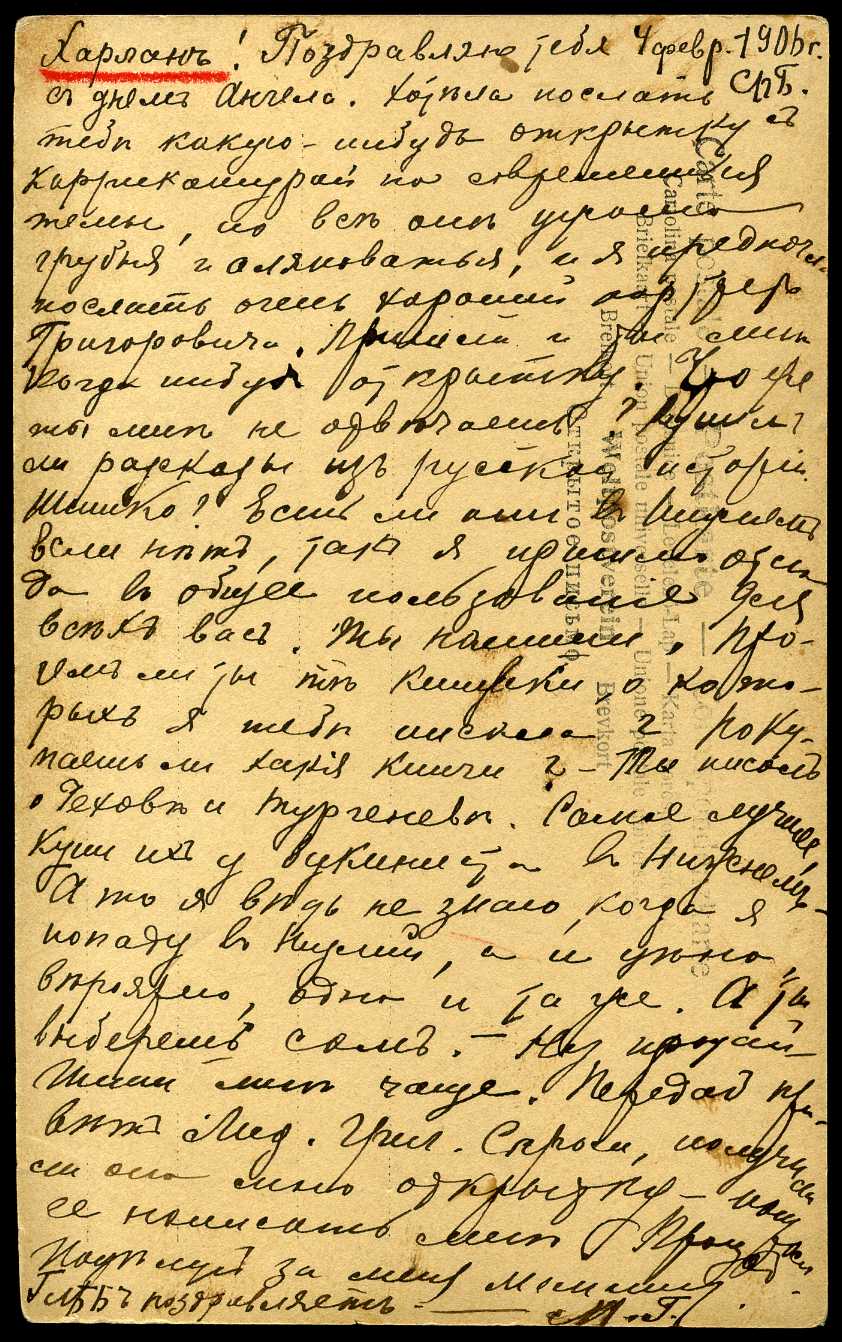 Харлань! Поздравляю тебя 4 февр. 1906 г.
СПБ.
съ днемъ Ангела. Хотѣла послать
тебѣ какую-нибудь открытку съ
каррикатурой на современныя
темы, но всѣ онѣ ужасно
грубыя и аляповатыя, и я предпочла
послать очень хорошій портретъ
Григоровича. Пришли и ты мнѣ
когда нибудь открытку. Что же
ты мнѣ не отвѣчаешь? Купилъ
ли разсказы изъ русской исторіи
Шишко? Есть ли они в
если нѣтъ, такъ я пришлю отсю
да въ общее пользованіе для
всѣхъ васъ. Ты напиши, про-
челъ ли ты тѣ книжки, о кото-
рыхъ я тебѣ писала? Поку-
паешь ли какія книги? – Ты писалъ
о Чеховѣ и Тургеневѣ. Самое лучшее,
купи ихъ у букиниста в Нижнемъ-
А то я вѣдь не знаю, когда я
попаду в Нижній, а цѣна,
вѣроятно, одна и та же. А ты
выберешь самъ. – Ну прощай
Пиши мнѣ чаще. Передай при-
вѣтъ Лид. Григ. Спроси, получи
ла ли она мою открытку –
ее написать мнѣ. Прощай.
Поцѣлуй за меня мамашу.
Глѣбъ поздравляетъ. — М. Г.
Carte postale — Postkarte —
Cartolina postale — Karta
Briefkaart — Union postale universelle — Unione postale
Brevkort Weltpostverein Brevkort
ОТКРЫТОЕ ПИСЬМО